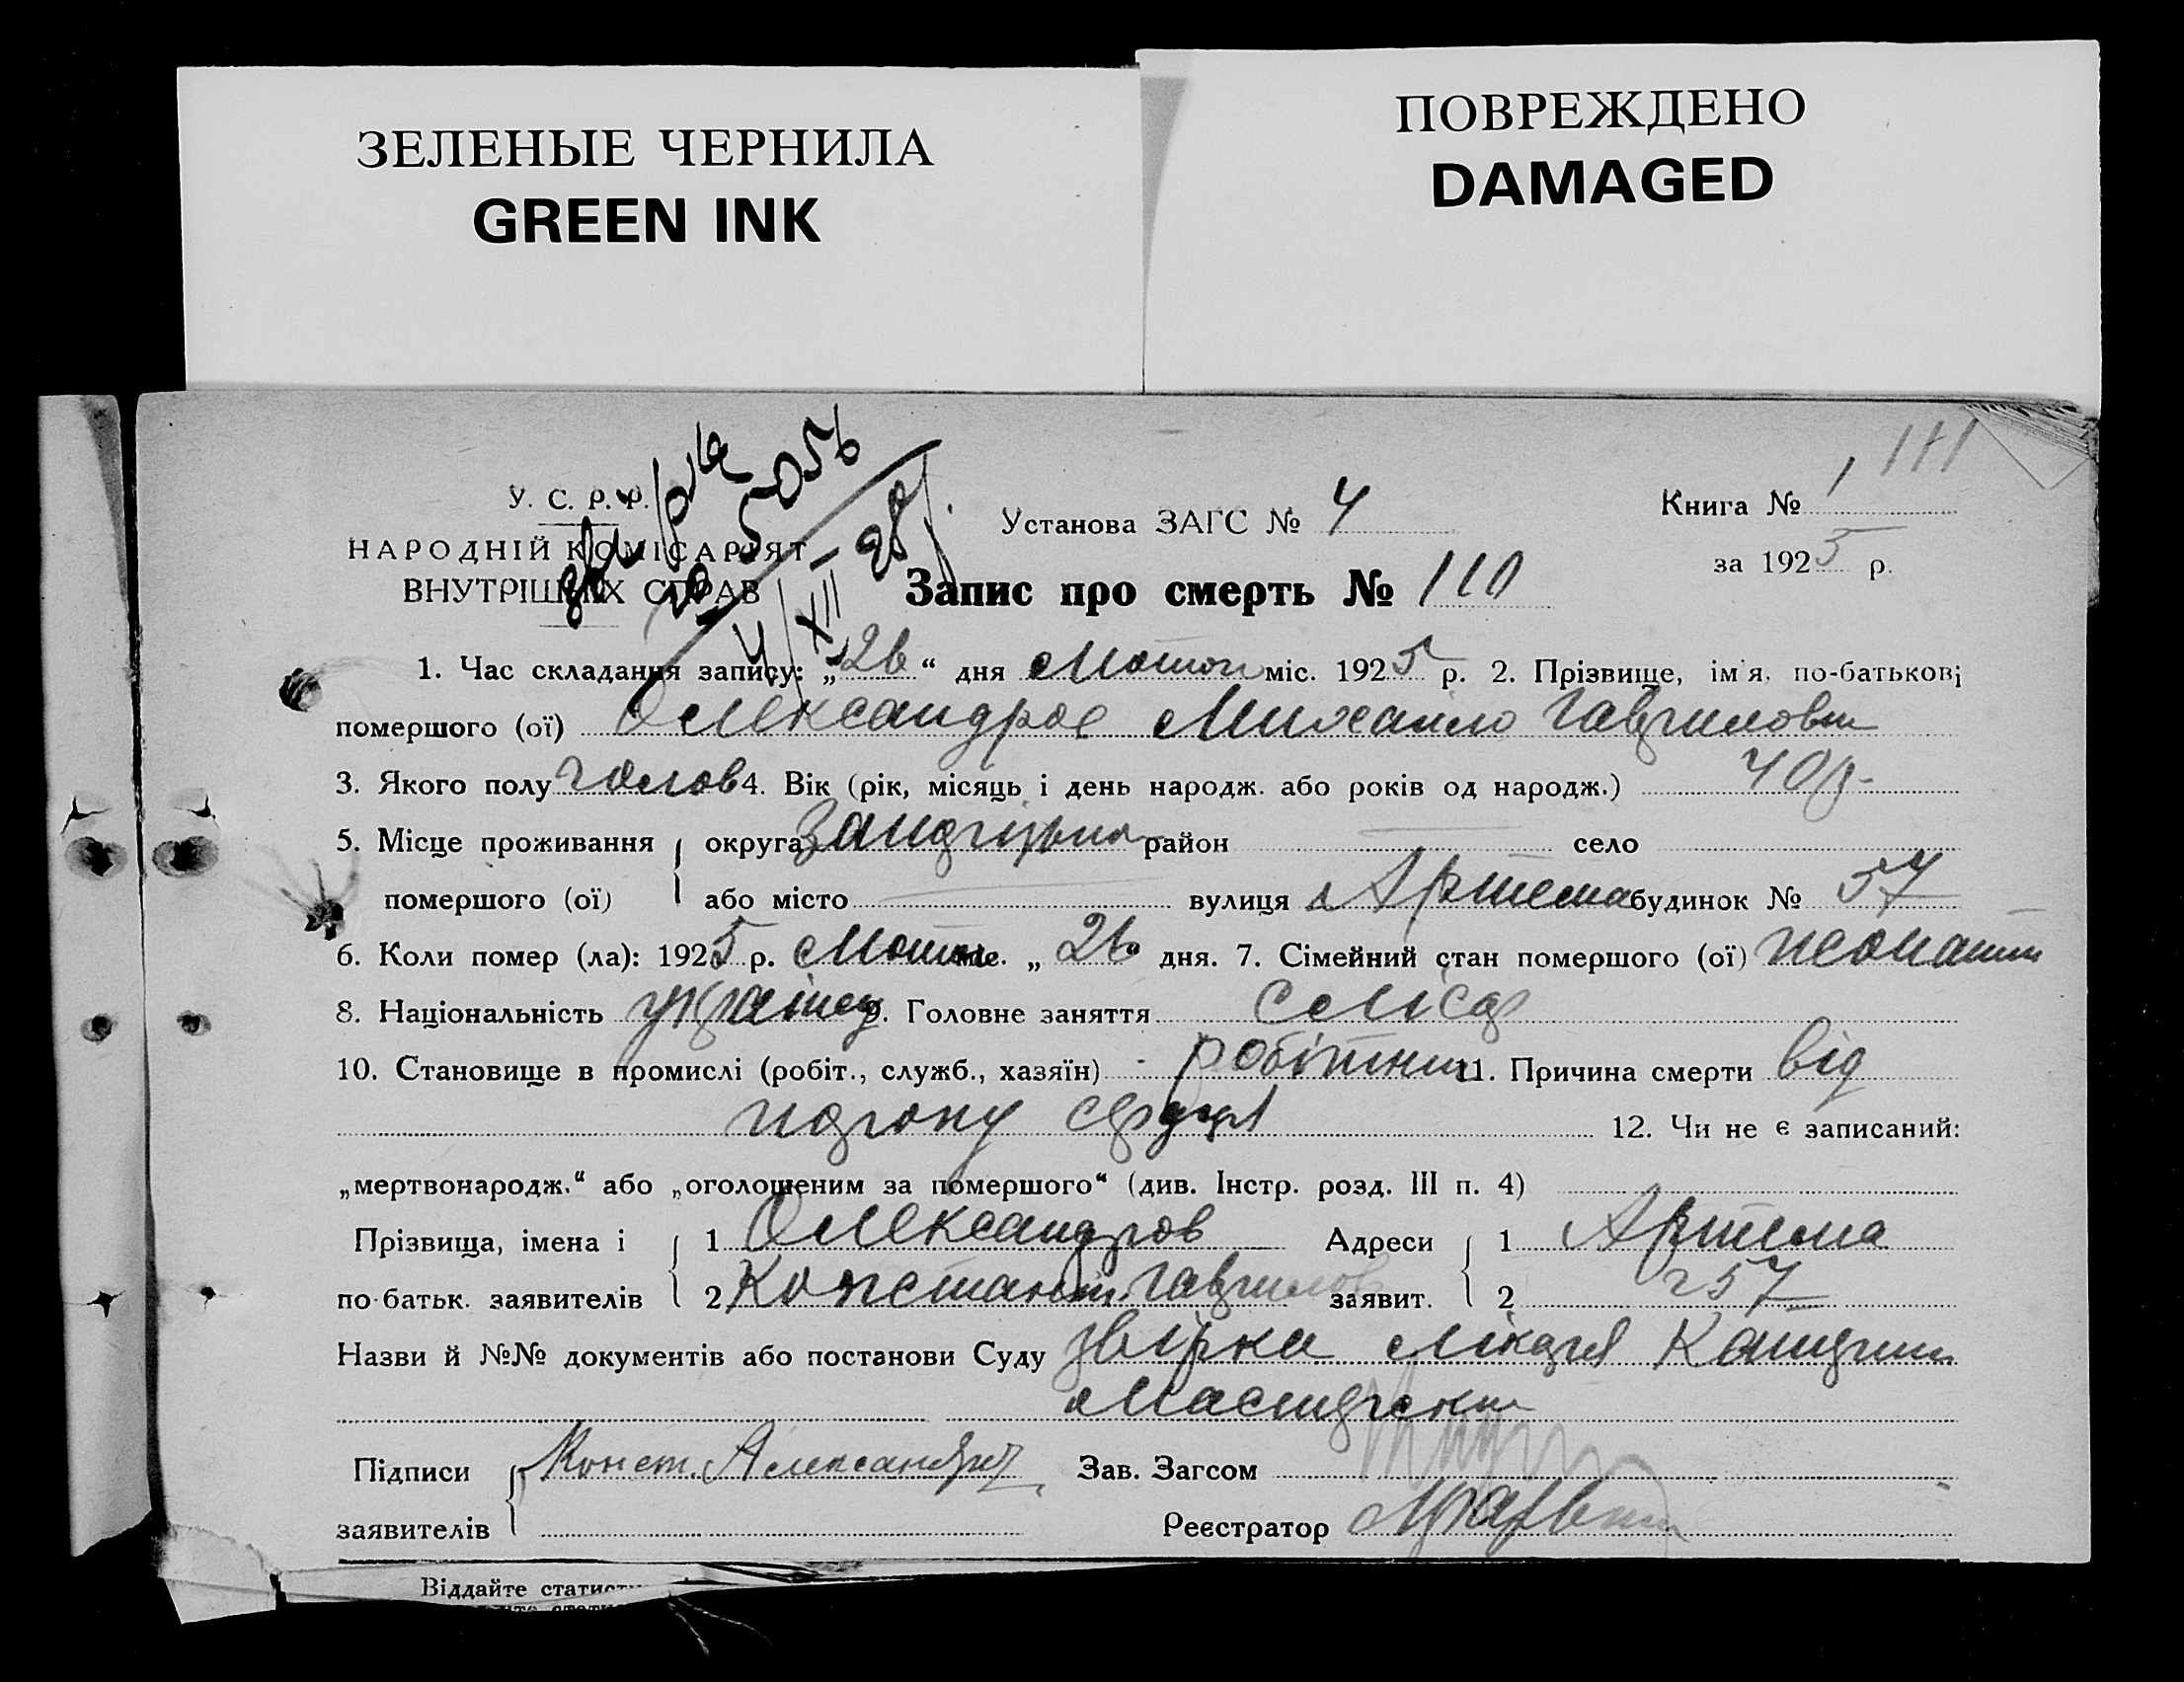 ЗЕЛЕНЫЕ ЧЕРНИЛА
GREEN INK
ПОВРЕЖДЕНО
DAMAGED
У. С. Р. Р.
НАРОДНІЙ КОМІСАРІЯТ
ВНУТРІШНІХ СПРАВ
4/XII 28 р.
Установа ЗАГС № 4
Книга № 1
за 1925 р.
Запис про смерть № 110
1. Час складання запису: „26“ дня Лютого міс. 1925 р. 2. Прізвище, ім'я, по-батькові
помершого (ої) Олександров Михайло Гаврилович
3. Якого полу чолов 4. Вік (рік, місяць і день народж. або років од народж.) 40 р.
5. Місце проживання округа район село
помершого (ої) або місто вулиця Артема будинок № 57
6. Коли помер (ла): 1925 р. Лютого міс. „26 дня. 7. Сімейний стан помершого (ої) жонатий
8. Національність українец 9. Головне заняття
10. Становище в промислі (робіт., служб., хазяїн) робітник 11. Причина смерти від
серця 12. Чи не є записаний:
„мертвонародж.“ або „оголошеним за помершого“ (див. Інстр. розд. III п. 4)
Прізвища, імена і 1 Олександров Адреси 1 Артема
по-батьк. заявителів 2 Констант. Гаврилов заявит. 2 57
Назви й №№ документів або постанови Суду лікаря
Підписи Конст. Александров Зав. Загсом
заявителів Реєстратор
Віддайте статист